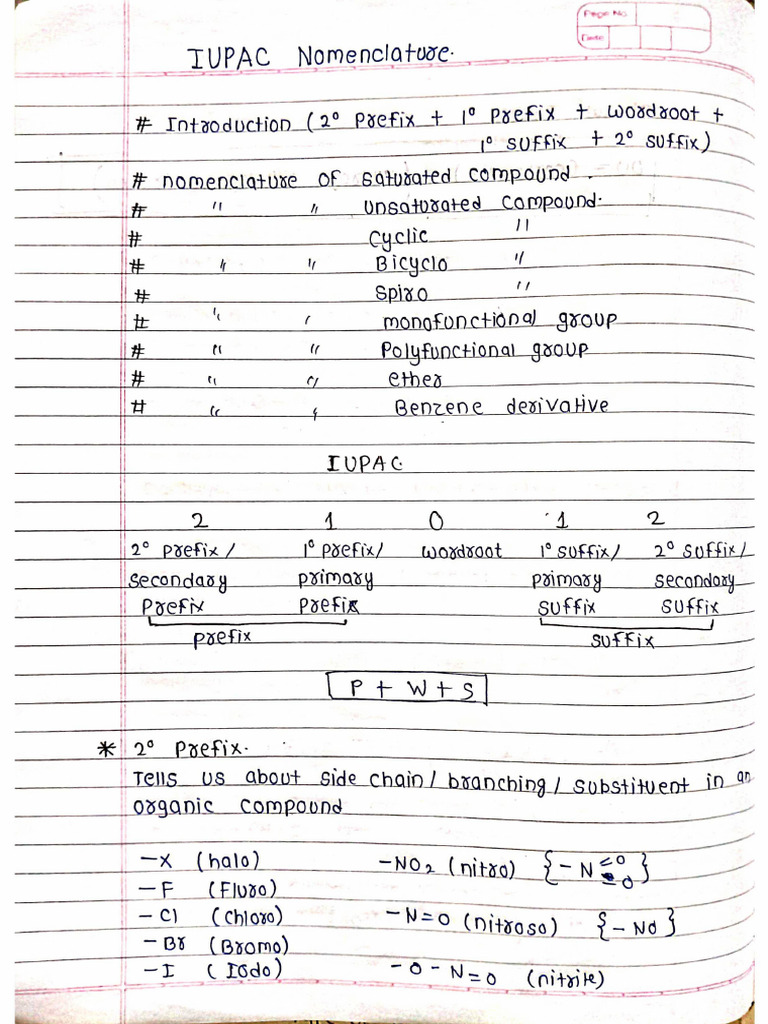 Page No.
Date
IUPAC Nomenclature.
# Introduction (2° Prefix + 1° Prefix + wordroot +
1° suffix + 2° suffix)
# nomenclature of saturated compound.
# " " unsaturated compound.
# cyclic "
# " " Bicyclo "
# Spiro "
# " " monofunctional group
# " " Polyfunctional group
# " " ether
# " " Benzene derivative
IUPAC.
2 1 0 1 2
2° prefix / 1° prefix/ wordroot 1° suffix/ 2° suffix/
secondary primary primary secondary
Prefix Prefix suffix suffix
prefix suffix
P + W + S
* 2° Prefix.
Tells us about side chain / branching / substituent in an
organic compound
-X (halo) -NO2 (nitro) {-N=O =O}
-F (Fluro)
-Cl (chloro) -N=O (nitroso) {-NO}
-Br (Bromo)
-I (Iodo) -O-N=O (nitrite)